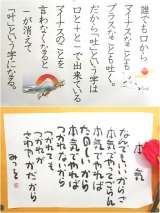 誰でも口から
マイナスなことも
プラスなことも吐く。
だから「吐」という字は
口と＋と－で出来ている
マイナスのことを
言わなくなると
－が消えて
「叶」という字になる。
本気
なんでもいいからさ
本気でやってごらん
本気でやれば
たのしいから
本気でやれば
つかれないから
つかれても
つかれが
さわやかだから
みつを